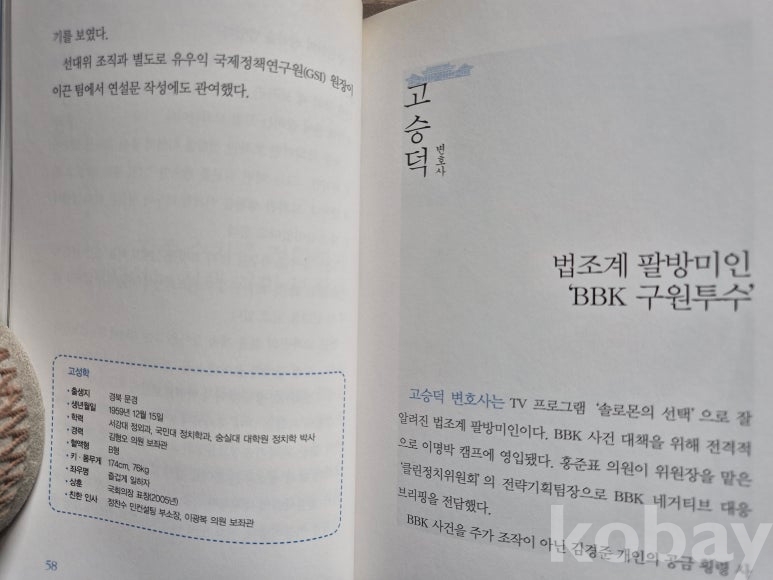 기를 보였다.
선대위 조직과 별도로 유우익 국제정책연구원(GSI) 원장이
이끈 팀에서 연설문 작성에도 관여했다.
고성학
• 출생지 경북 문경
• 생년월일 1959년 12월 15일
• 학력 서강대 정외과, 국민대 정치학과, 숭실대 대학원 정치학 박사
• 경력 김형오 의원 보좌관
• 혈액형 B형
• 키 · 몸무게 174cm, 76kg
• 좌우명 즐겁게 일하자
• 상훈 국회의장 표창(2005년)
• 친한 인사 정찬수 민컨설팅 부소장, 이광복 의원 보좌관
58
고승덕
변호사
법조계 팔방미인
'BBK 구원투수'
고승덕 변호사는 TV 프로그램 '솔로몬의 선택'으로 잘
알려진 법조계 팔방미인이다. BBK 사건 대책을 위해 전격적
으로 이명박 캠프에 영입됐다. 홍준표 의원이 위원장을 맡은
'클린정치위원회'의 전략기획팀장으로 BBK 네거티브 대응
브리핑을 전담했다.
BBK 사건을 주가 조작이 아닌 김경준 개인의 공금 횡령 사
kobay